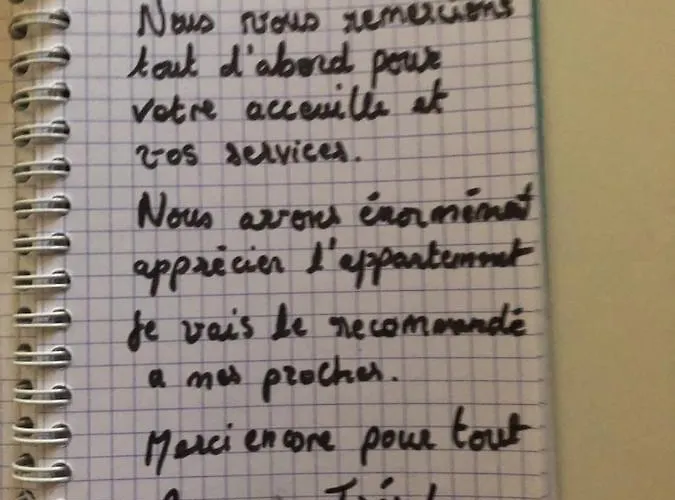 Nous vous remercions
tout d'abord pour
votre acceuille et
vos services.
Nous avons énormémet
apprécier l'appartemmet
Je vais le recommandé
a mes proches.
Merci encore pour tout